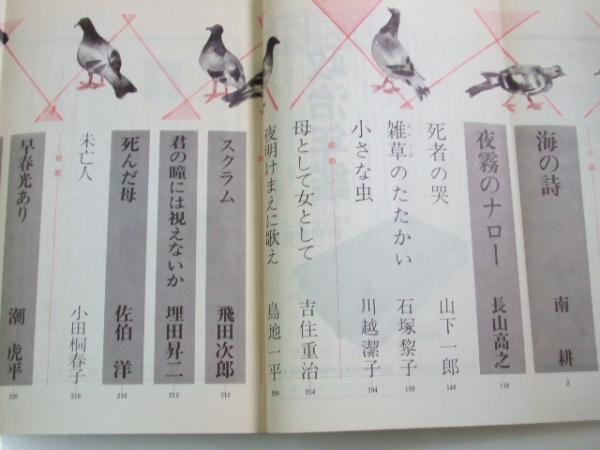 海の詩 南 耕 2
夜霧のナロー 長山高之 118
死者の哭 山下一郎 148
雑草のたたかい 石塚黎子 159
小さな虫 川越潔子 194
戯曲
母として女として 吉住重治 234
夜明けまえに歌え 島地一平 258
スクラム 飛田次郎 210
君の瞳には視えないか 埋田昇二 212
死んだ母 佐伯 洋 216
未亡人 小田桐春子 218
早春光あり 潮 虎平 220